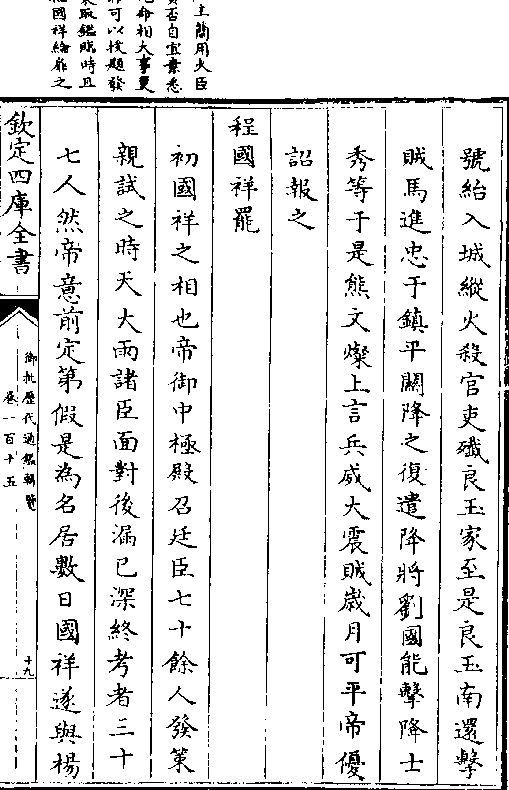 主簡用大臣
否自宜素悉
命相大事更
可以找題發
取鑑臨時且
國祥繪雁之
號紿入城縱火殺官吏殱良玉家至是良玉南還擊
賊馬進忠于鎮平關降之復遣降將劉國能擊降士
秀等于是熊文燦上言兵威大震賊歲月可平帝優
詔報之
程國祥罷
初國祥之相也帝御中極殿召廷臣七十餘人發策
親試之時天大雨諸臣面對後漏已深終考者三十
七人然帝意前定第假是為名居數日國祥遂與楊
欽定四庫全書
御批歷代通鑑輯覽
卷一百十五
十九